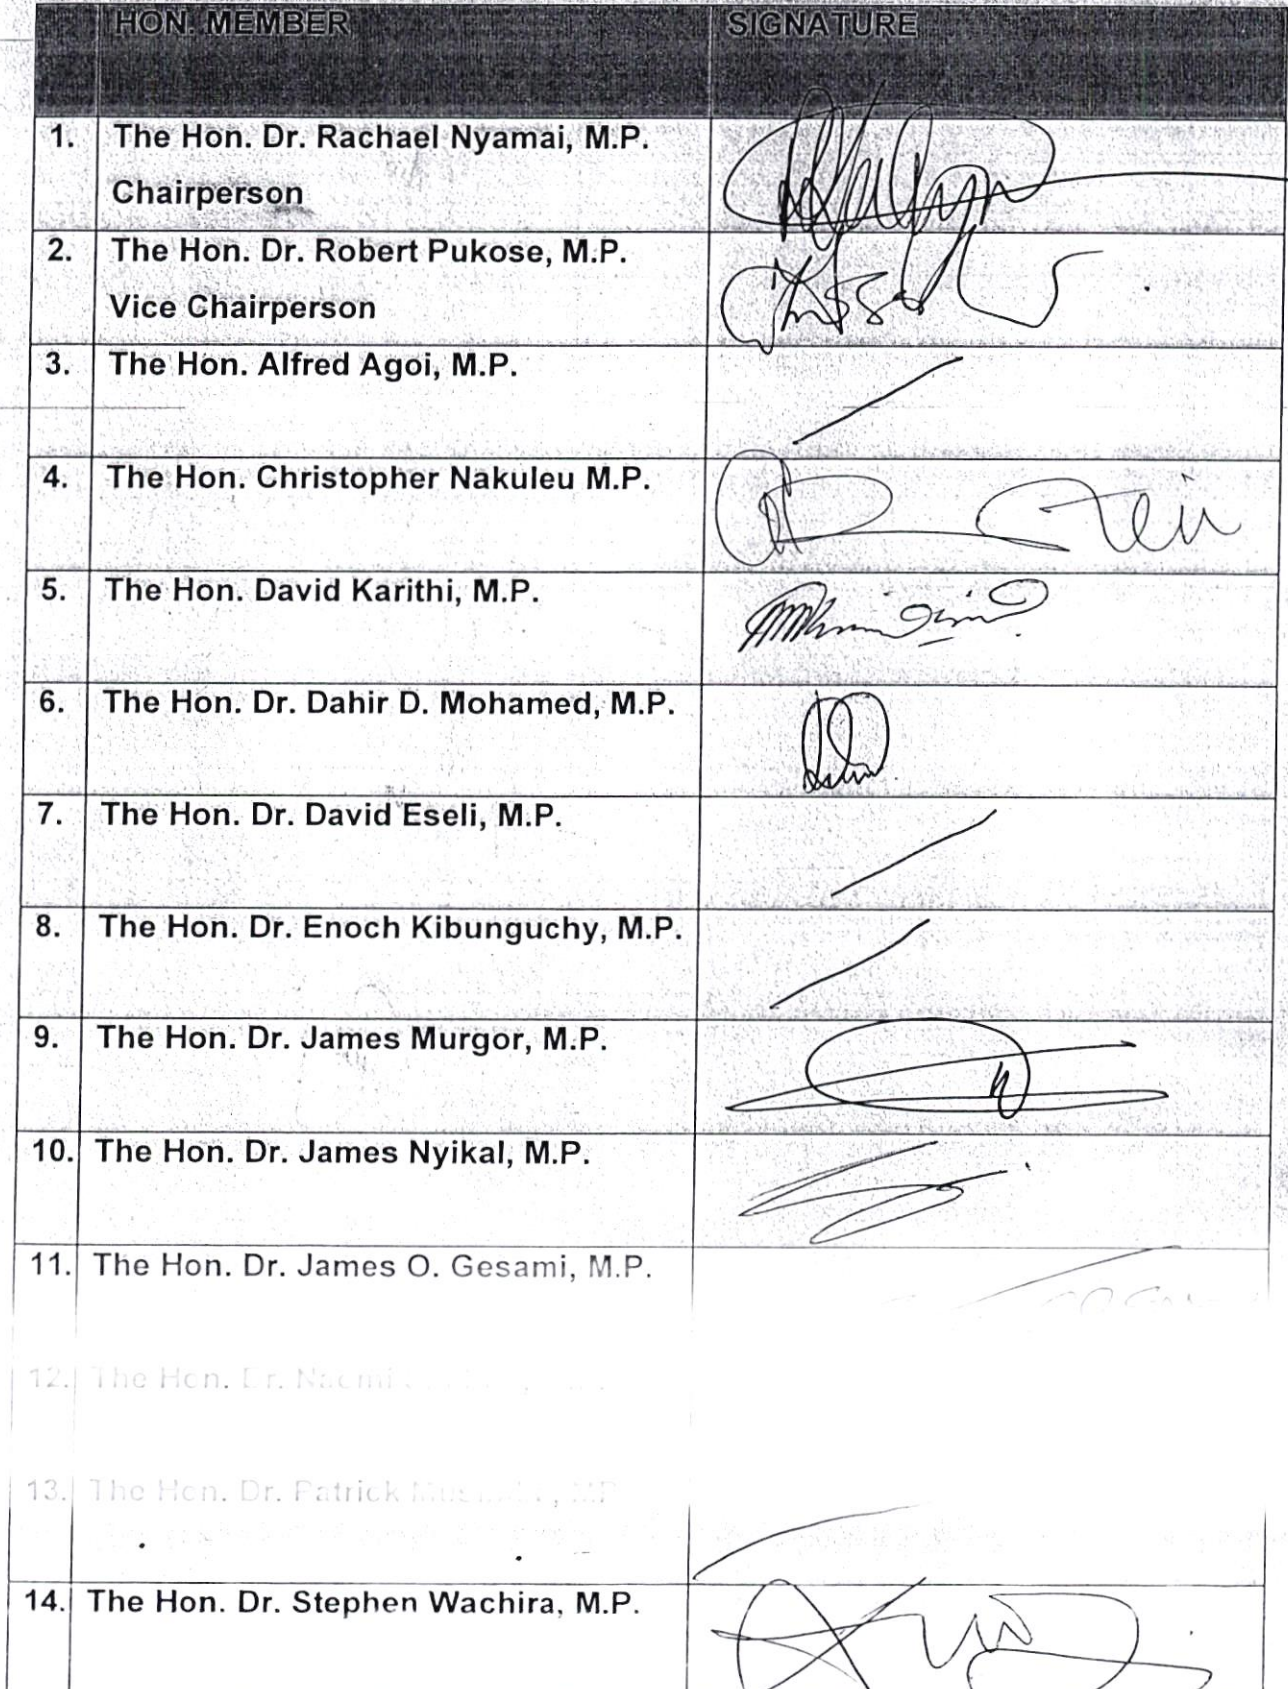 HON. MEMBER SIGNATURE
1. The Hon. Dr. Rachael Nyamai, M.P.
Chairperson
2. The Hon. Dr. Robert Pukose, M.P.
Vice Chairperson
3. The Hon. Alfred Agoi, M.P.
4. The Hon. Christopher Nakuleu M.P.
5. The Hon. David Karithi, M.P.
6. The Hon. Dr. Dahir D. Mohamed, M.P.
7. The Hon. Dr. David Eseli, M.P.
8. The Hon. Dr. Enoch Kibunguchy, M.P.
9. The Hon. Dr. James Murgor, M.P.
10. The Hon. Dr. James Nyikal, M.P.
11. The Hon. Dr. James O. Gesami, M.P.
12. The Hon. Dr. Naomi
13. The Hon. Dr. Patrick
14. The Hon. Dr. Stephen Wachira, M.P.